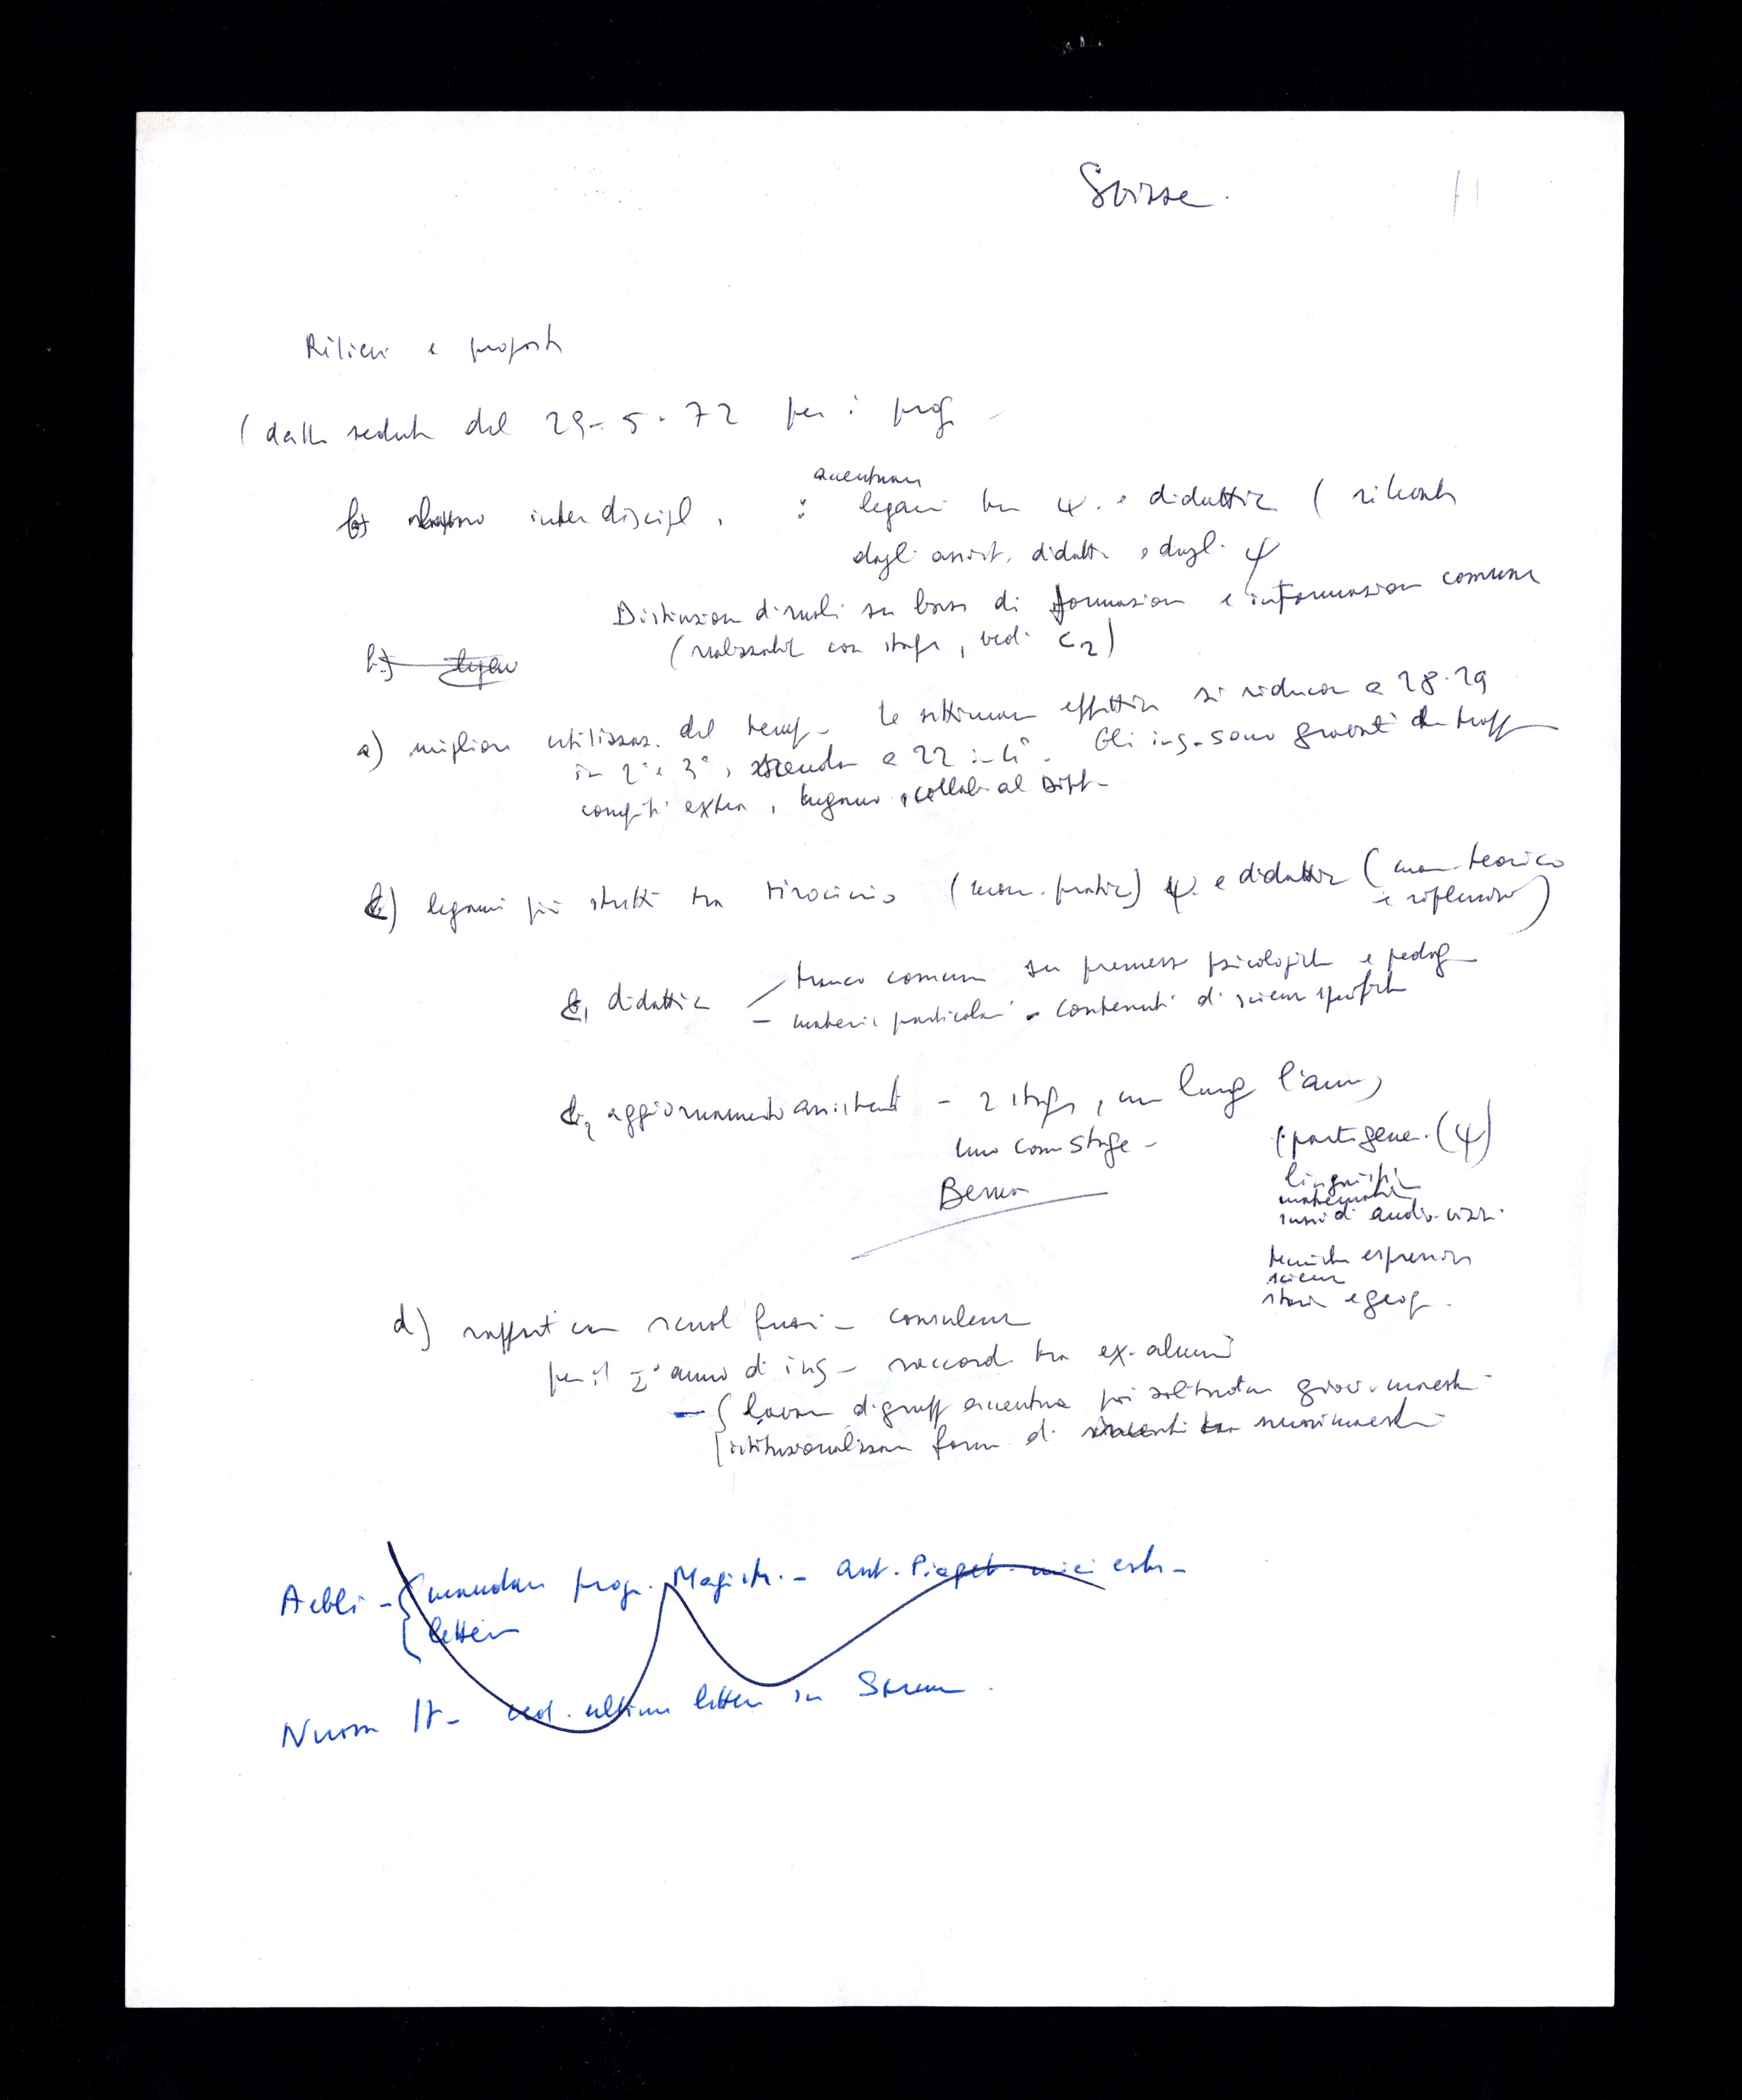 Suisse.
Rilievi e proposte
(dalla seduta del 29-5-72 per i prog
accentuare
b) interdiscipl. : legami tra ψ. e didattica (
dagli assist. didatt e dagli ψ
Distinzione di ruoli su base di formazione e informazione comune
(realizzabile con stage, vedi c2)
b)
a) migliore utilizzaz. del tempo - Le settimane effettive si riducono a 28-29
in 2° e 3°, scendono a 22 in 4°. Gli ins. sono gravati da troppi
compiti extra, legami, collab. al Dipt-
c) legami più stretti tra tirocinio (mom. pratico) ψ. e didattica (mom. teorico
e riflessivo)
c1 didattica tronco comune su premesse psicologiche e pedag
- materie particolari - contenuti di scienze specifiche
c2 aggiornamento assistenti - 2 stage, un lungo l'anno,
uno com stage -
(parte gene. (ψ)
Berna
linguistica
matematica
sussidi audio-visivi.
tecniche espressive
scienze
storia e geog.
d) rapporti con scuole fuori - consulenze
per il I° anno di ins - raccordi tra ex-alunni
- lavoro di gruppo accentua più solitudine giov. maestri
istituzionalizzare forme di
Aebli - mandare prog. Magistr. - aut. Piaget
lettera
Nuova It - ved. ultima lettera in